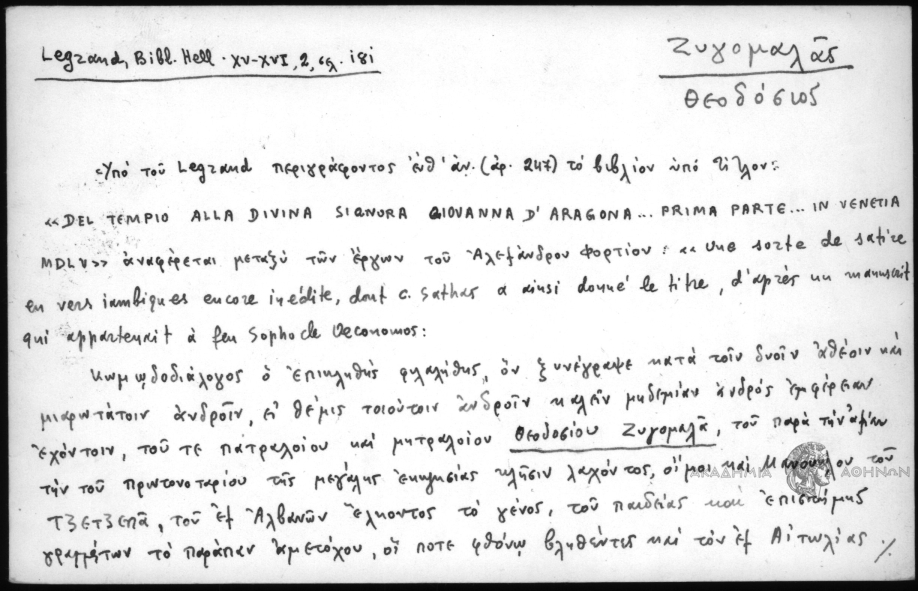 Legrand, Bibl. Hell. XV-XVI, 2, σελ. 181
Ζυγομαλᾶς
Θεοδόσιος
«Ὑπό τοῦ Legrand περιγράφοντος ἐνθ' ἀν. (ἀρ. 247) τό βιβλίον ὑπό τίτλον:
«DEL TEMPIO ALLA DIVINA SIGNORA GIOVANNA D'ARAGONA... PRIMA PARTE... IN VENETIA
MDLV» ἀναφέρεται μεταξύ τῶν ἔργων τοῦ Ἀλεξάνδρου Φορτίου: «une sorte de satire
en vers iambiques encore inédite, dont C. Sathas a ainsi donné le titre, d'après un manuscrit
qui appartenait à feu Sophocle Oeconomos:
Κωμωδοδιάλογος ὁ ἐπικληθής φιλαλήθης, ὅν ξυνέγραψε κατά τοῖν δυοῖν ἀθέοιν καί
μιαρωτάτοιν ἀνδροῖν, εἰ θέμις τοιούτοιν ἀνδροῖν καλεῖν μηδεμίαν ἀνδρός ἐμφέρειαν
ἐχόντοιν, τοῦ τε πατραλοίου καί μητραλοίου Θεοδοσίου Ζυγομαλᾶ, τοῦ παρά τήν ἀξίαν
τήν τοῦ πρωτονοταρίου τῆς μεγάλης ἐκκλησίας κλῆσιν λαχόντος, οἴμοι καί Μανουήλου τοῦ
ΑΚΑΔΗΜΙΑ ΑΘΗΝΩΝ
Τζετζεπᾶ, τοῦ ἐξ Ἀλβανῶν ἕλκοντος τό γένος, τοῦ παιδείας καί ἐπιστήμης
γραμμάτων τό παράπαν ἀμετόχου, οἵ ποτε φθόνῳ βληθέντες καί τόν ἐξ Αἰτωλίας ./.